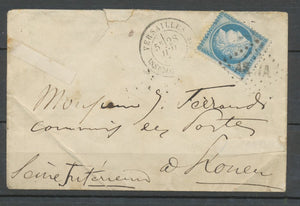 VERSAILLES
Monsieur J. Ferrandi
commis des Postes
à Rouen
Seine Inférieure